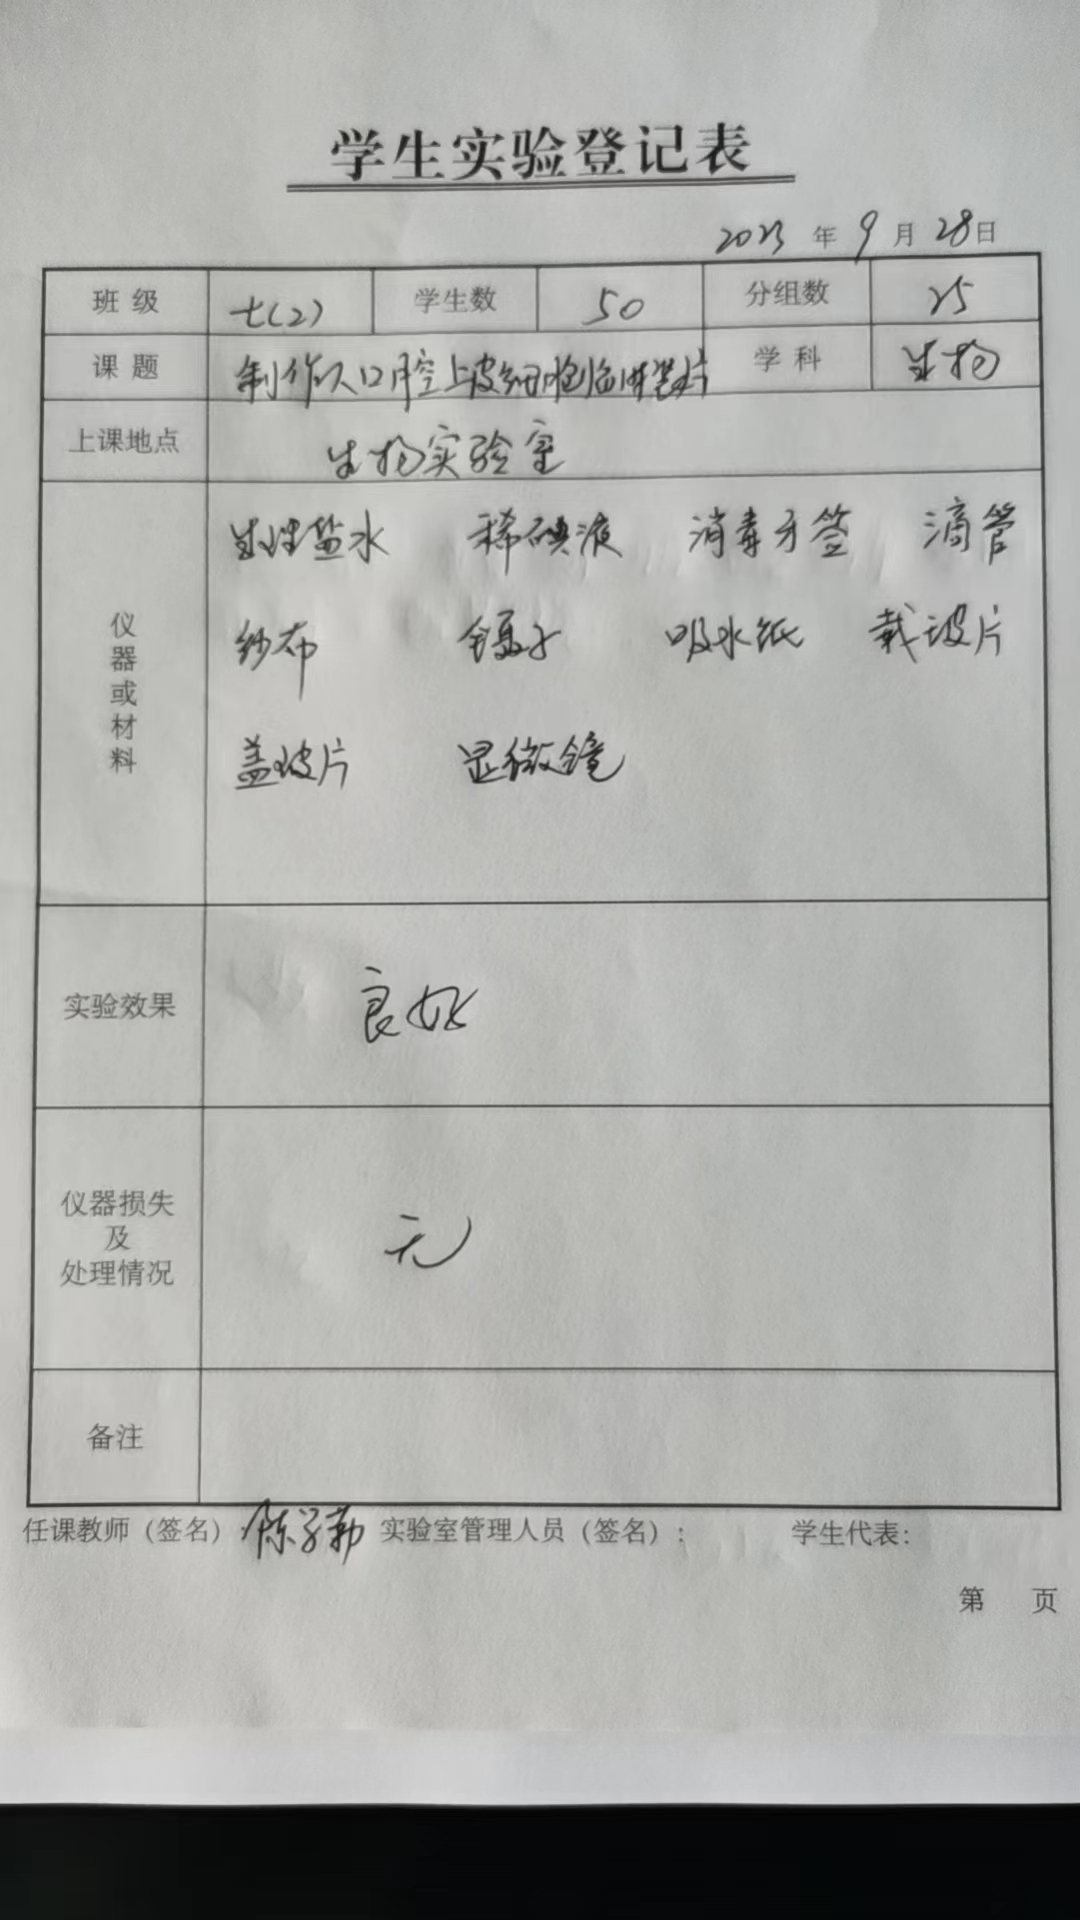 学生实验登记表
2023 年 9 月 28 日
班级 七(2) 学生数 50 分组数 25
课题 制作人口腔上皮细胞临时装片 学科 生物
上课地点 生物实验室
仪器或材料
生理盐水 稀碘液 消毒牙签 滴管
纱布 镊子 吸水纸 载玻片
盖玻片 显微镜
实验效果 良好
仪器损失
及
处理情况
无
备注
任课教师（签名） 陈学勤 实验室管理人员（签名）: 学生代表:
第 页